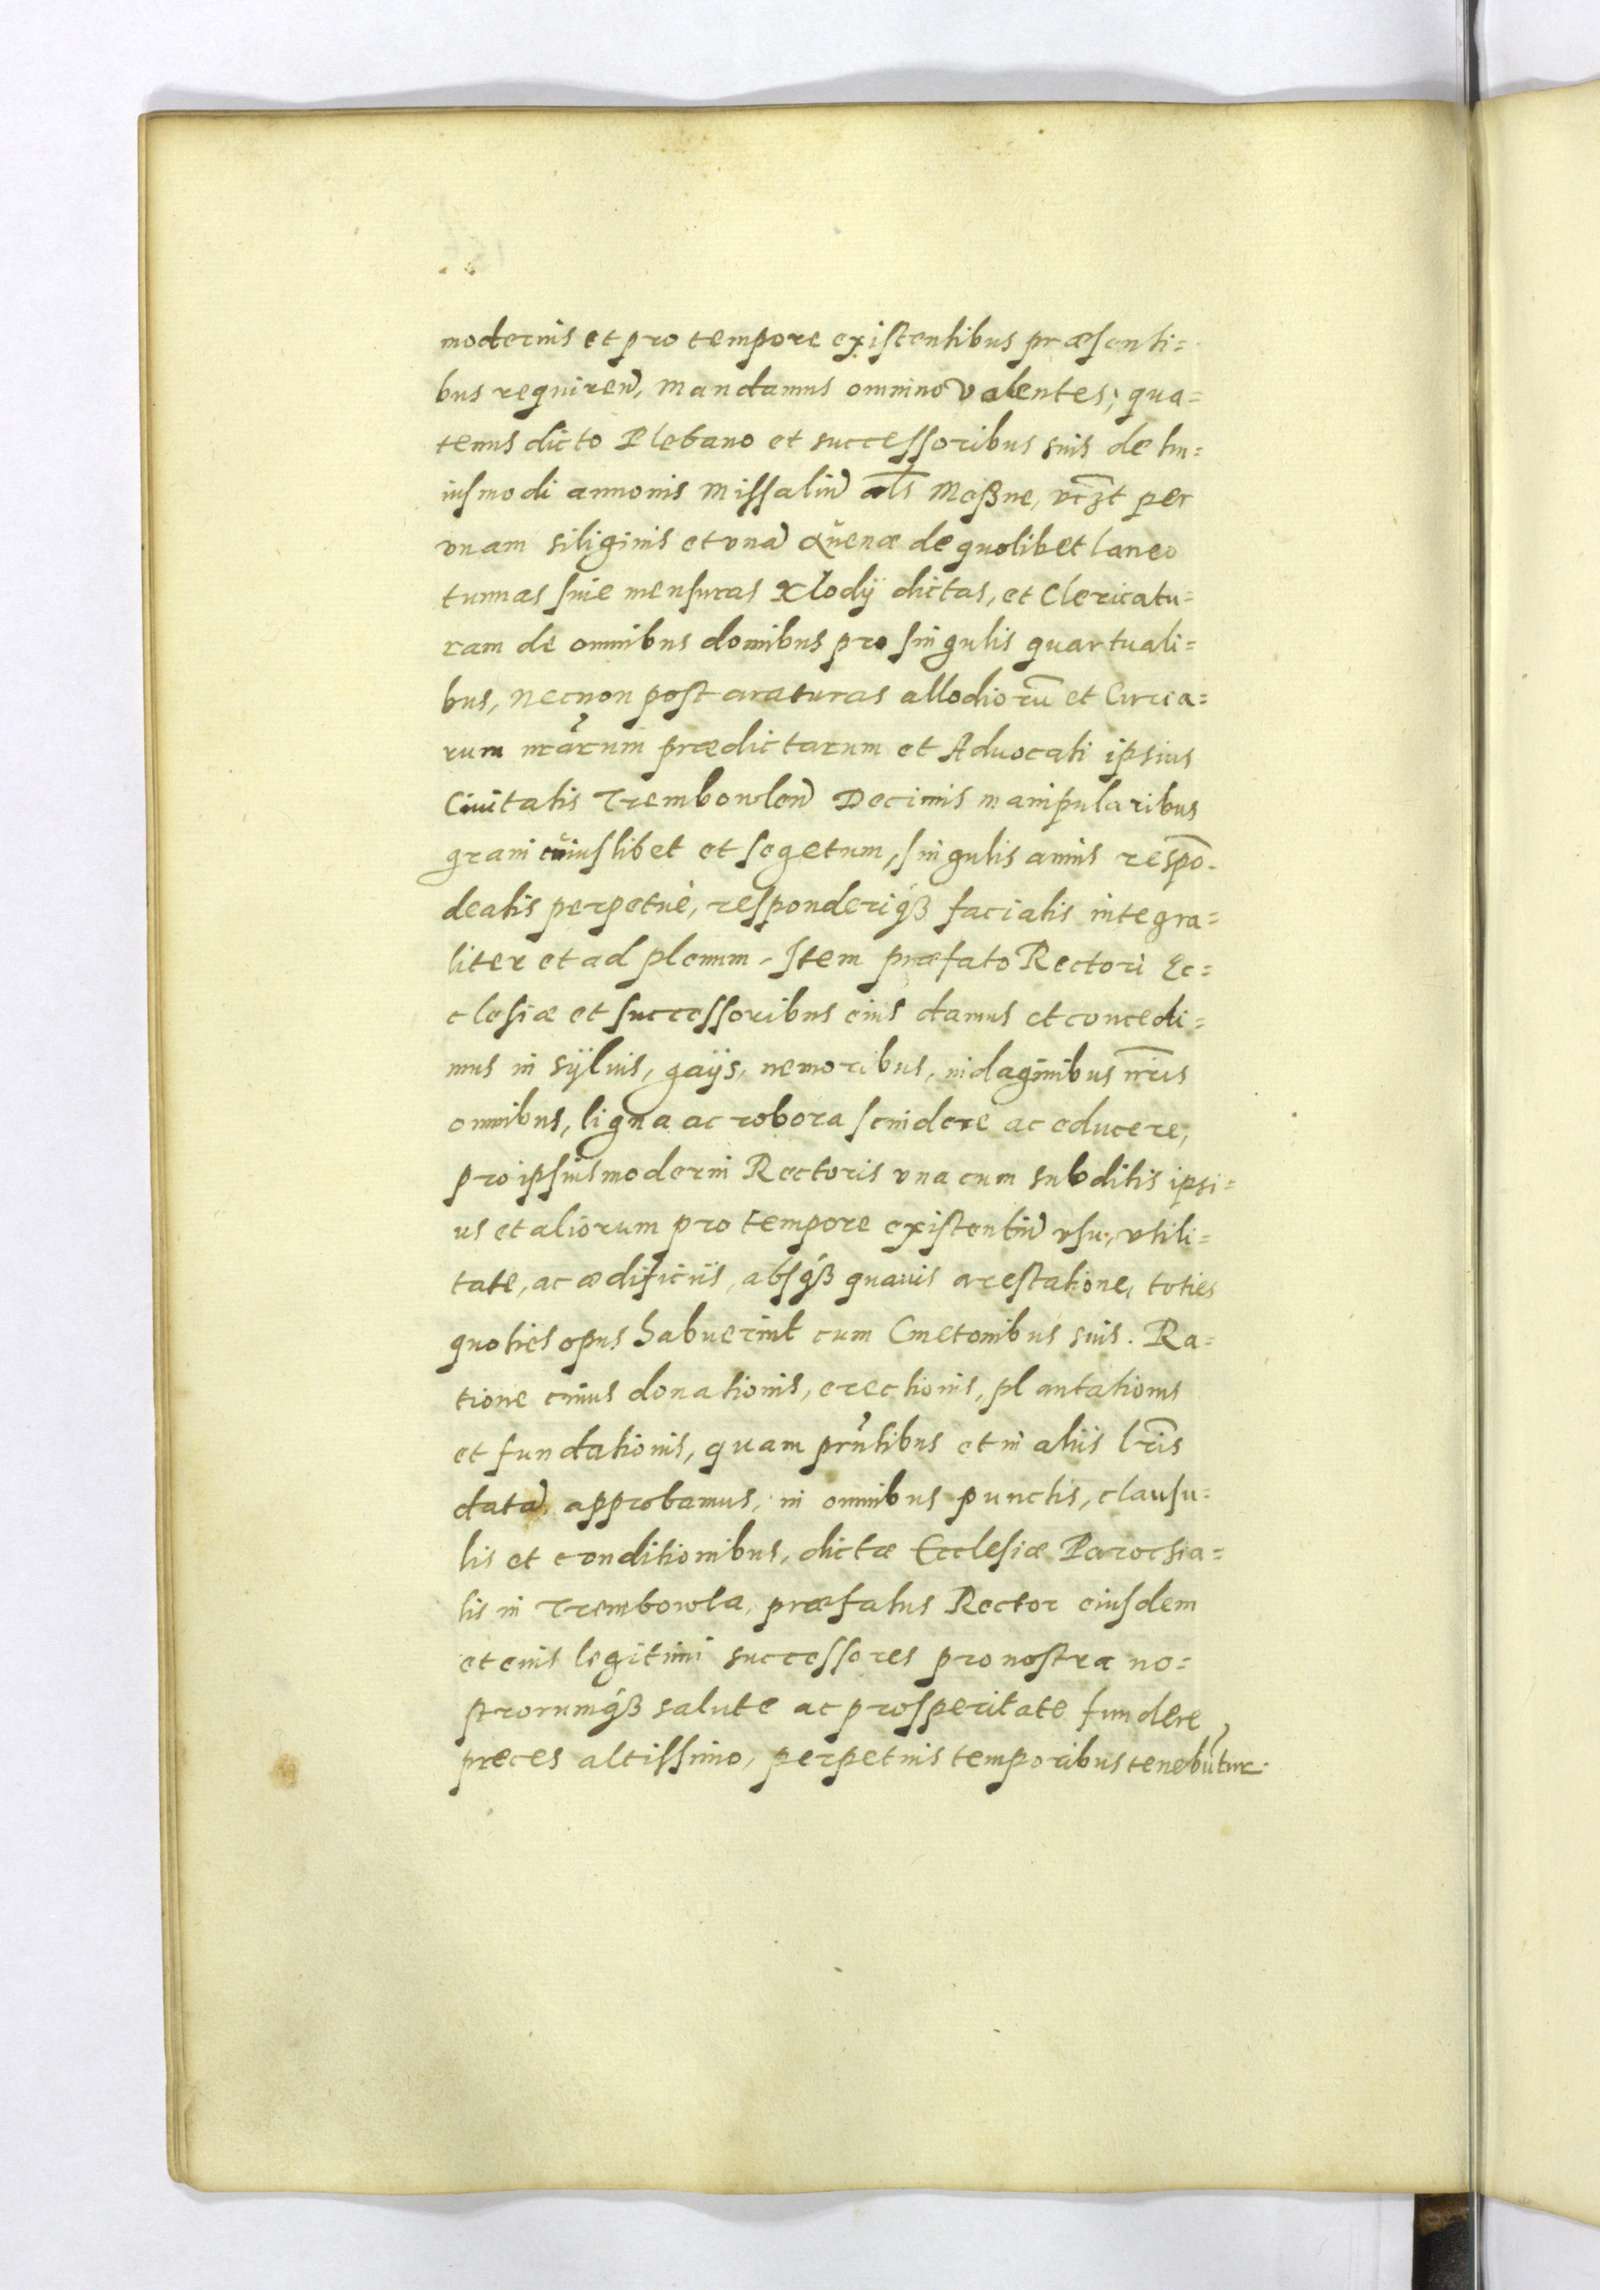 modernis et pro tempore existentibus præsenti=
bus requiren̄, mandamus omnino volentes; qua=
tenus dicto Plebano et successoribus suis de hu=
iusmodi annonis Missaliu̅ al̅s Meßne, vcz̅t per
vnam siliginis et vna̅ avenæ de quolibet laneo
tunnas siue mensuras Klody dictas, et Clericatu=
ram de omnibus domibus pro singulis quartuali=
bus, necnon post araturas allodioru̅ et Curia=
rum nr̅arum prædictarum et Advocati ipsius
Ciuitatis Trembowlen̅ Decimis manipularibus
grani cuiuslibet et segetum, singulis annis respo̅=
deatis perpetuè, responderiqß faciatis integra=
liter et ad plenum. Item præfato Rectori Ec=
clesiæ et successoribus eius damus et concedi=
mus in sÿluis, gaÿs, nemoribus, indaginibus nr̅is
omnibus, ligna ac robora scindere ac educere,
pro ipsius moderni Rectoris vna cum subditis ipsi=
us et aliorum pro tempore existentiu̅ vsu, vtili=
tate, ac ædificiis, absqß quauis arestatione, toties
quoties opus habuerint cum Cmetonibus suis. Ra=
tione cuius donationis, erectionis, plantationis
et fundationis, quam pr̅ntibus et in aliis lr̅is
data̅ approbamus, in omnibus punctis, clausu=
lis et conditionibus, dictæ Ecclesiæ Parochia=
lis in Trembowla, præfatus Rector eiusdem
et eius legitimi successores pro nostra no=
strorumqß salute ac prosperitate fundere
preces altissimo, perpetuis temporibus tenebu̅tur.